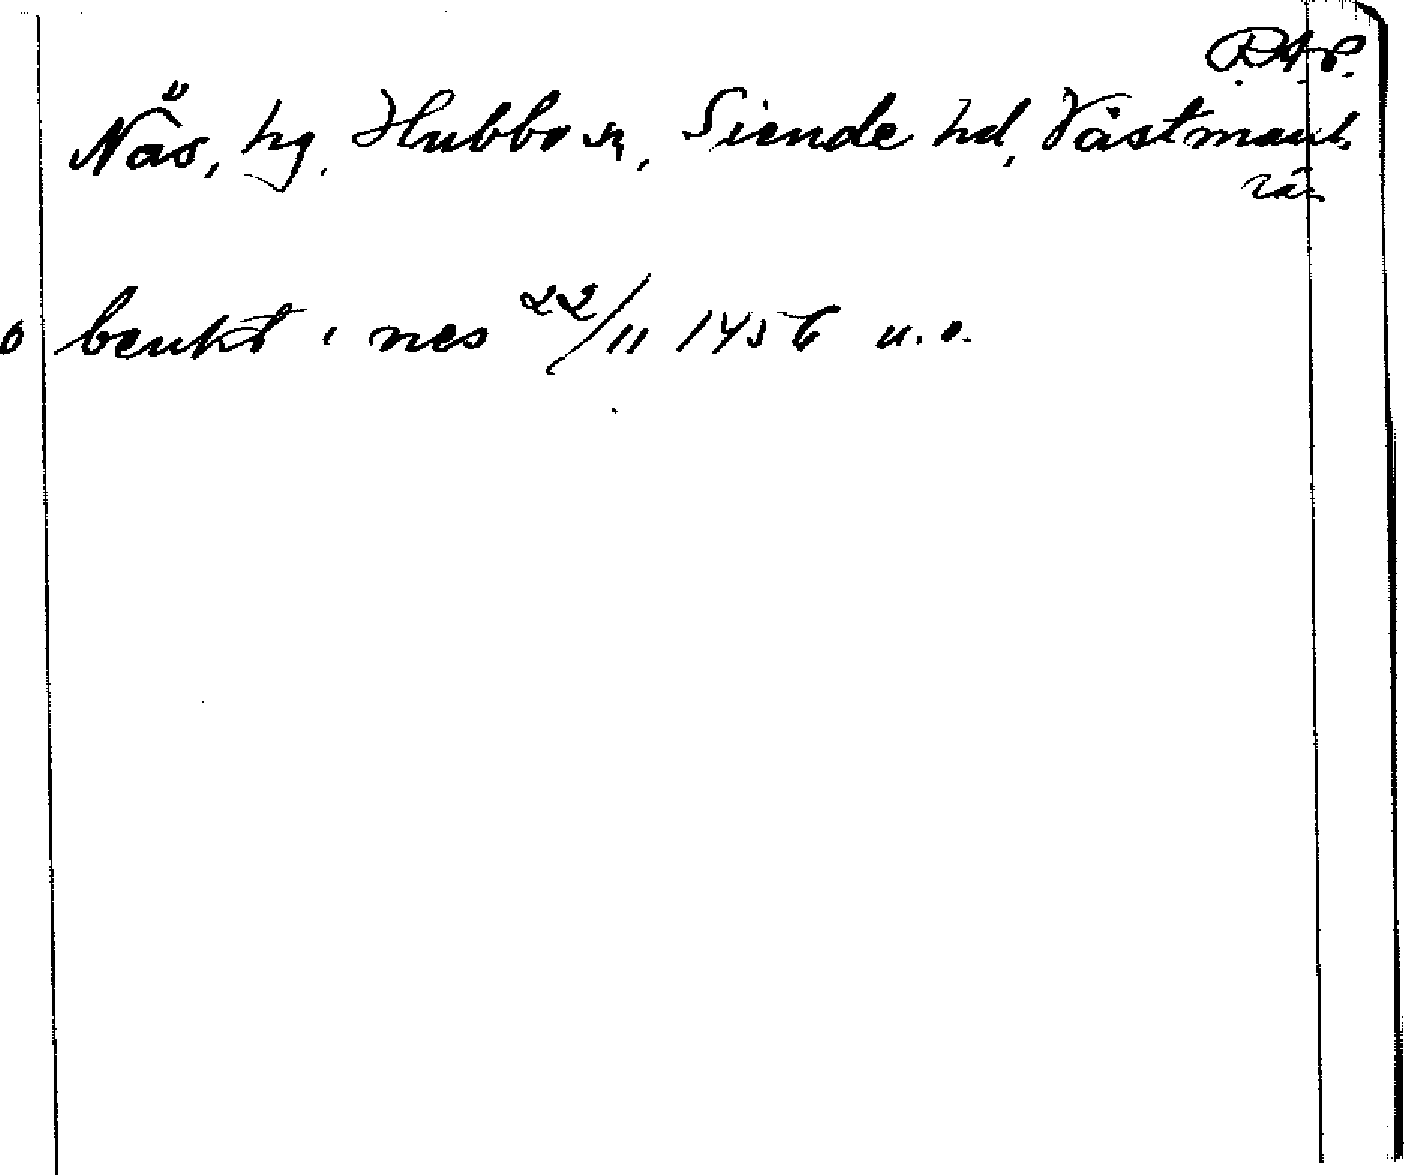 RAP.
Näs, hg. Hubbo sn, Siende hd, Västmanl.
o benkt i nes 22/11 1456 u.o.